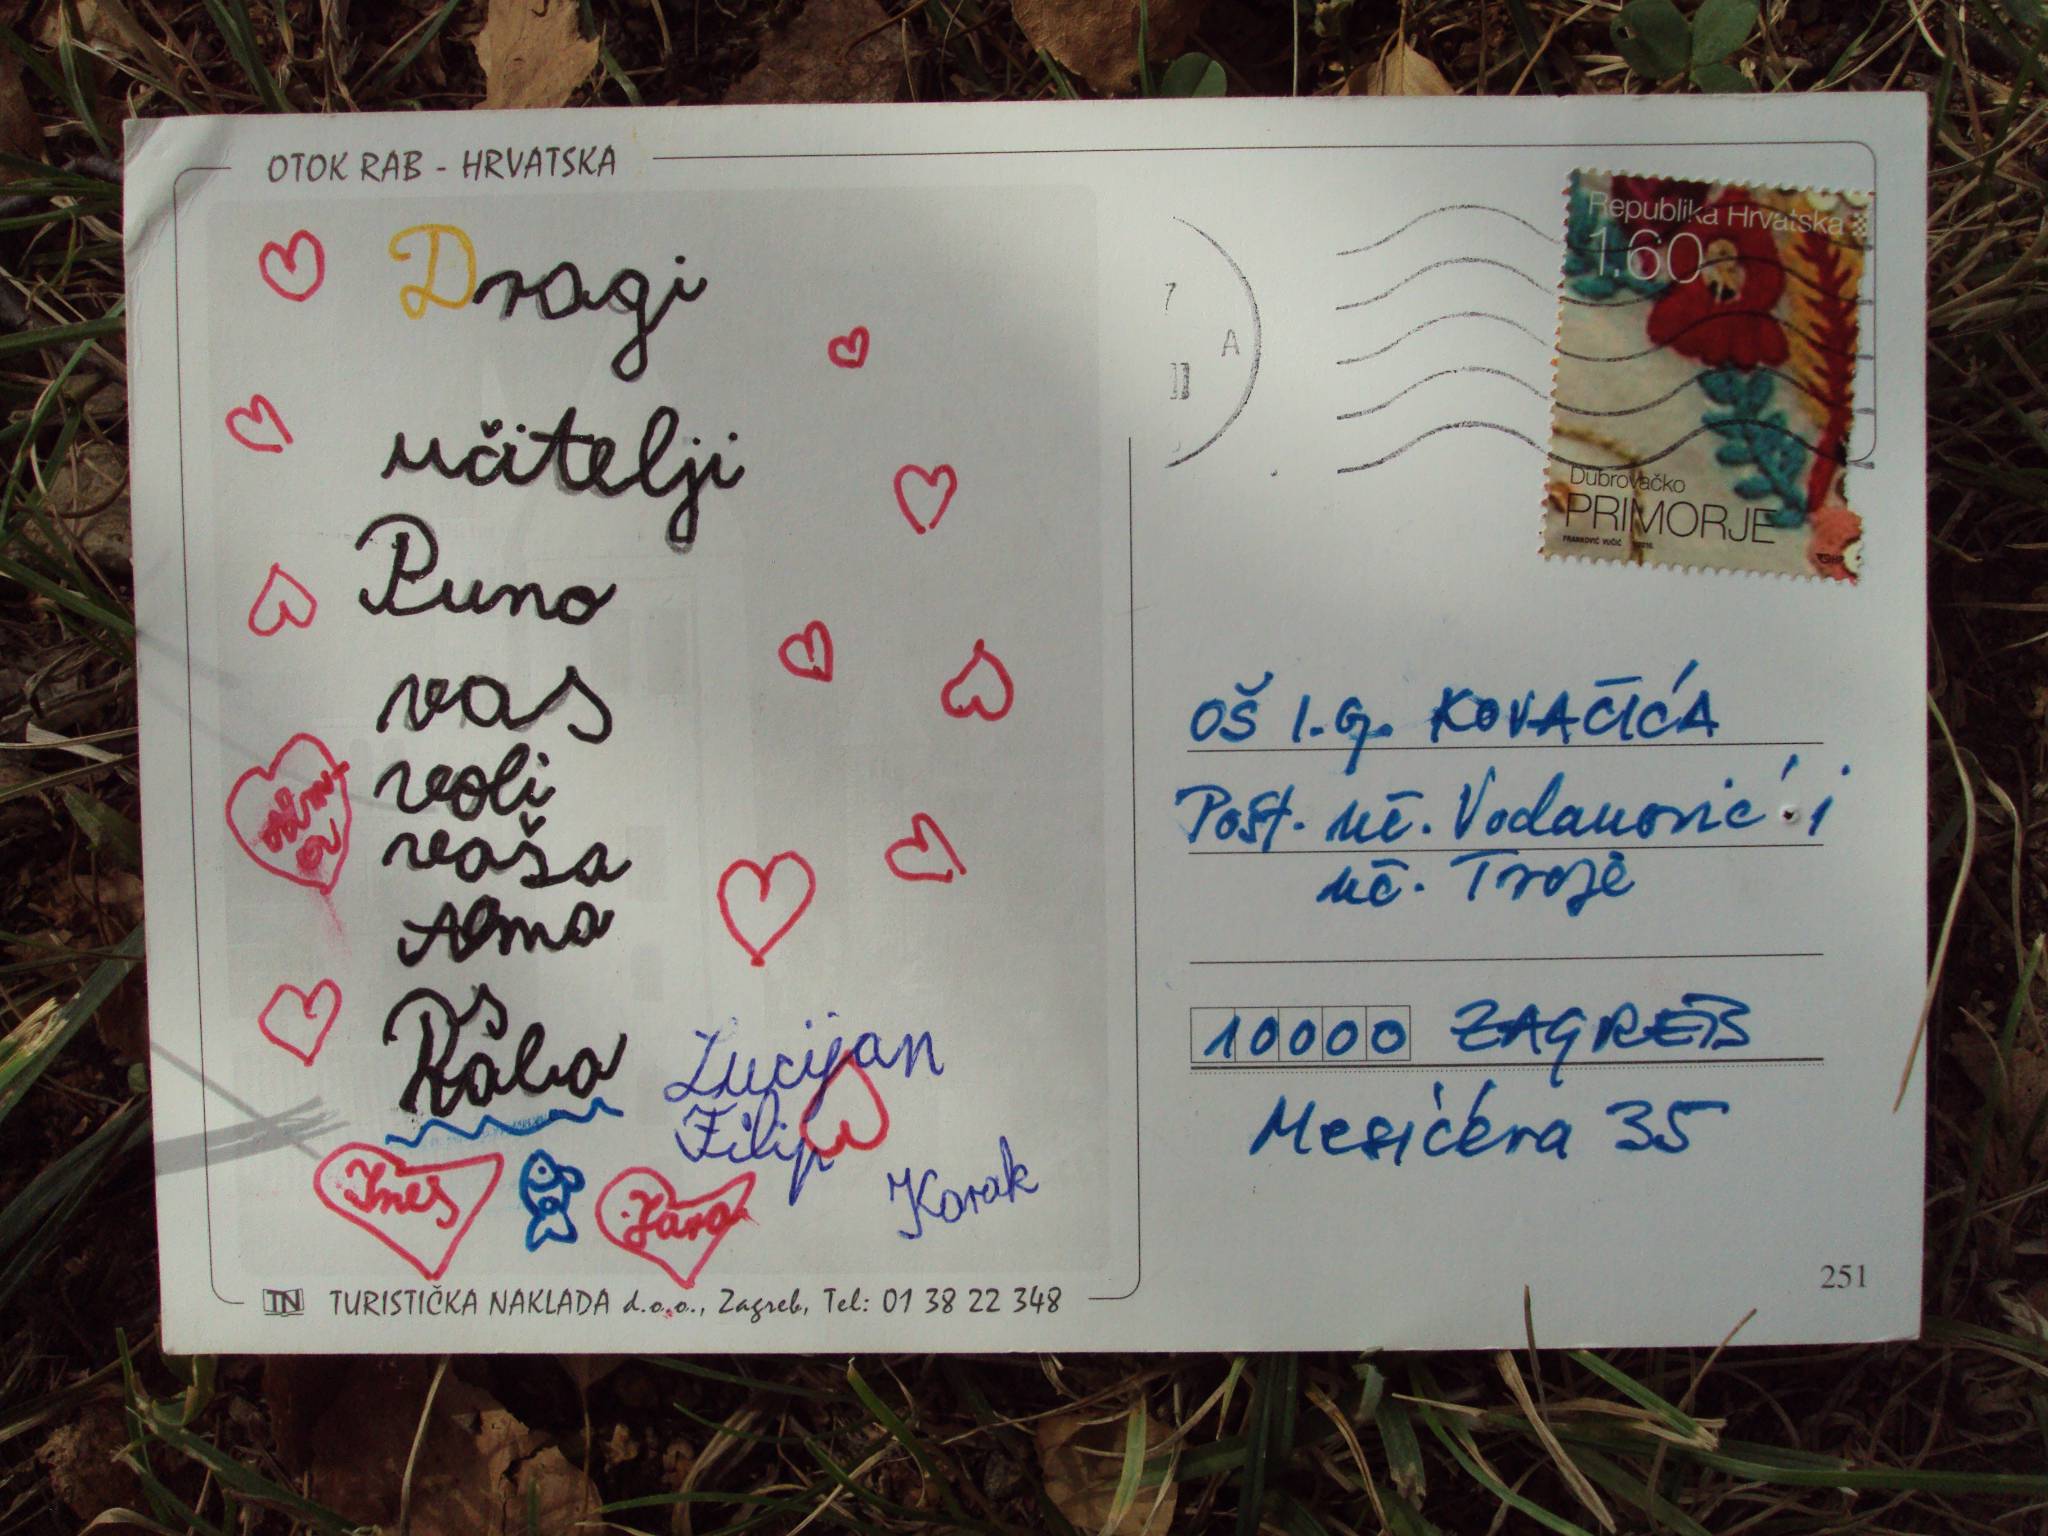 OTOK RAB - HRVATSKA
Dragi
učitelji
Puno
vas
voli
vaša
Alma
S
Raba
Lucijan
Filip
Karak
Ines
Jara
TN TURISTIČKA NAKLADA d.o.o., Zagreb, Tel: 01 38 22 348
7
A
Republika Hrvatska
1.60
Dubrovačko
PRIMORJE
FRANKOVIĆ VUČIĆ
OŠ I.G. KOVAČIĆA
Pošt. uč. Vodanović i
uč. Troje
10000 ZAGREB
Mesićeva 35
251